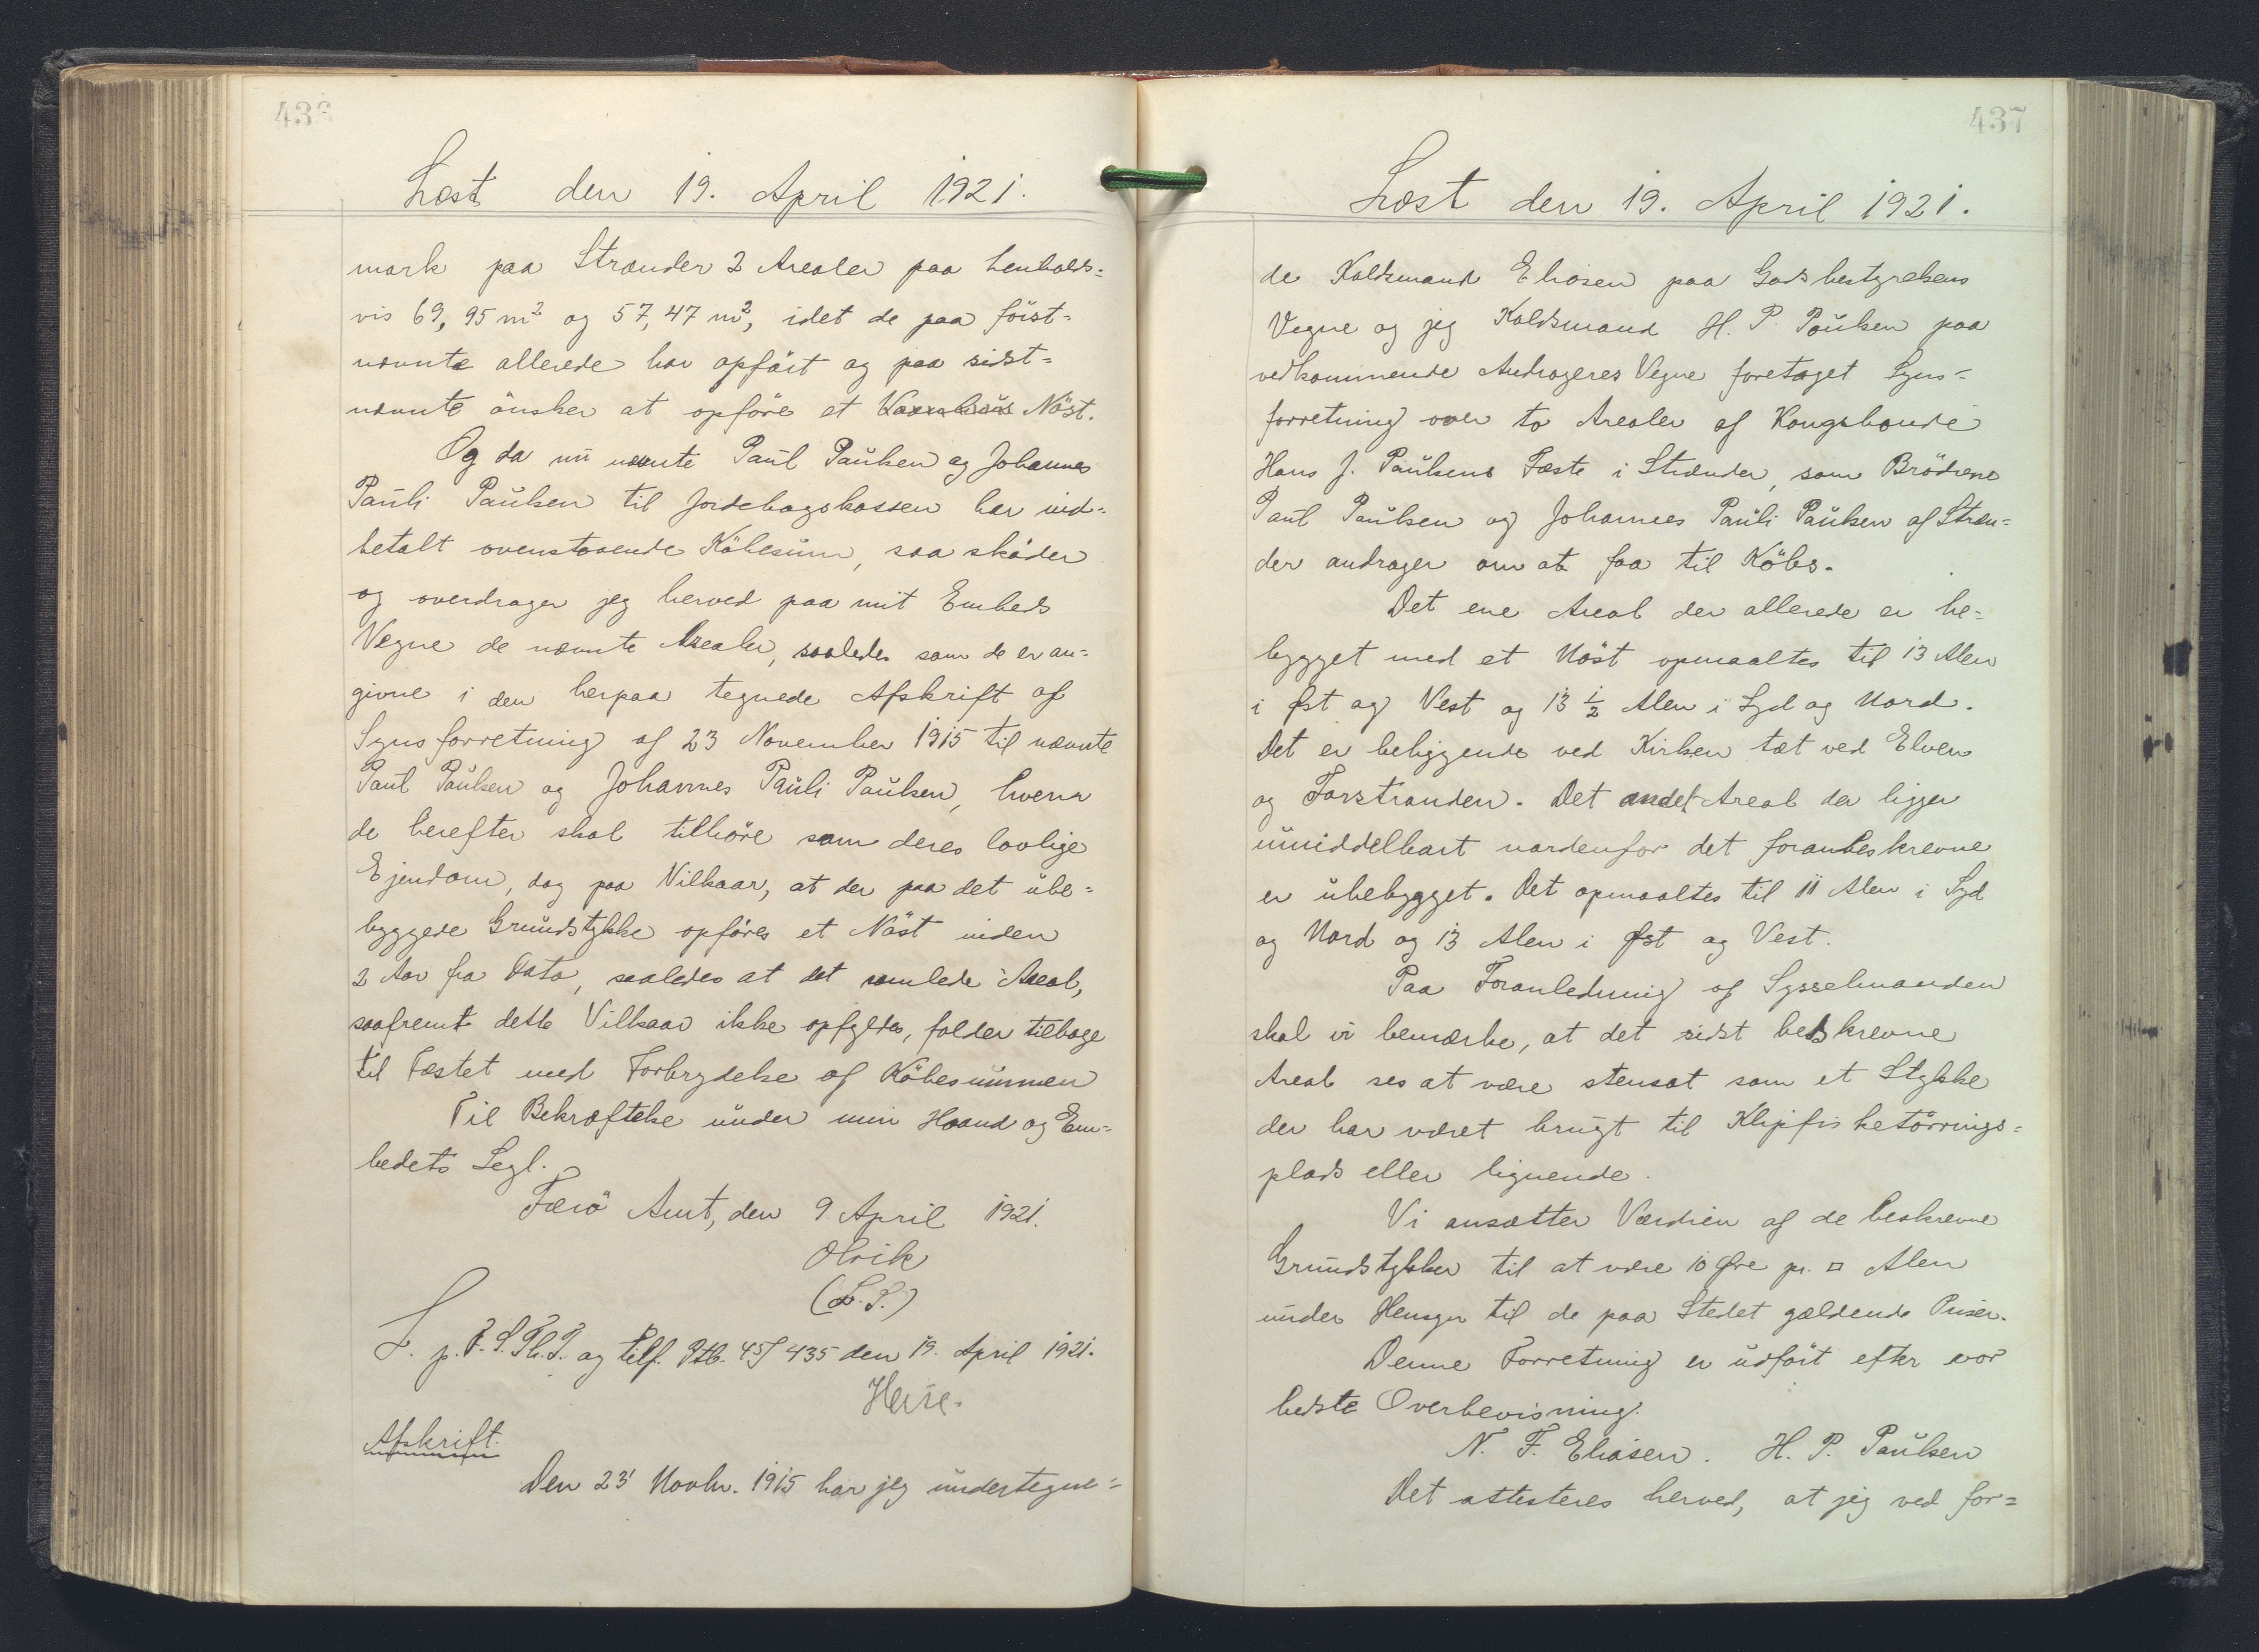 436
Læst den 19. April 1921.
mark paa Strænder 2 Arealer paa henholds=
vis 69,95 m² og 57,47 m², idet de paa först=
nævnte allerede har opfört og paa sidst=
nævnte önsker at opföre et Nöst.
Og da nu nævnte Paul Paulsen og Johannes
Pauli Paulsen til Jordebogskassen har ind=
betalt ovenstaaende Köbesum, saa sköder
og overdrager jeg herved paa mit Embeds
Vegne de nævnte Arealer, saaledes som de er an=
givne i den herpaa tegnede Afskrift af
Synsforretning af 23 November 1915 til nævnte
Paul Paulsen og Johannes Pauli Paulsen, hvem
de herefter skal tilhöre som deres lovlige
Ejendom, dog paa Vilkaar, at der paa det ube=
byggede Grundstykke opföres et Nöst inden
2 Aar fra Dato, saaledes at det samlede Areal,
saafremt dette Vilkaar ikke opfyldes, falder tilbage
til Fæstet med Forbrydelse af Köbesummen
Til Bekræftelse under min Haand og Em=
bedets Segl.
Færö Amt, den 9 April 1921.
Olrik
(L.S.)
L. p. F. S. Th. P. og tilf. Ptb. 45/435 den 19. April 1921.
Heise.
Afskrift.
Den 23' Novbr. 1915 har jeg undertegne=
437
Læst den 19. April 1921.
de Kaldsmand Eliasen paa Godsbestyrelsens
Vegne og jeg Kaldsmand H. P. Poulsen paa
vedkommende Andrageres Vegne foretaget Syns=
forretning over to Arealer af Kongsbonde
Hans J. Paulsens Fæste i Strænder, som Brödrene
Paul Paulsen og Johannes Pauli Paulsen af Stræn=
der andrager om at faa til Köbs.
Det ene Areal der allerede er be=
bygget med et Nöst opmaaltes til 13 Alen
i Øst og Vest og 13 ½ Alen i Syd og Nord.
Det er beliggende ved Kirken tæt ved Elven
og Forstranden. Det andet Areal der ligger
umiddelbart nordenfor det foranbeskrevne
er ubebygget. Det opmaaltes til 11 Alen i Syd
og Nord og 13 Alen i Øst og Vest.
Paa Foranledning af Sysselmanden
skal vi bemærke, at det sidst beskrevne
Areal ses at være stensat som et Stykke
der har været brugt til Klipfisketörrings=
plads eller lignende.
Vi ansætter Værdien af de beskrevne
Grundstykker til at være 10 Øre pr. □ Alen
under Hensyn til de paa Stedet gældende Priser.
Denne Forretning er udfört efter vor
bedste Overbevisning.
N. F. Eliasen. H. P. Paulsen
Det attesteres herved, at jeg ved for=